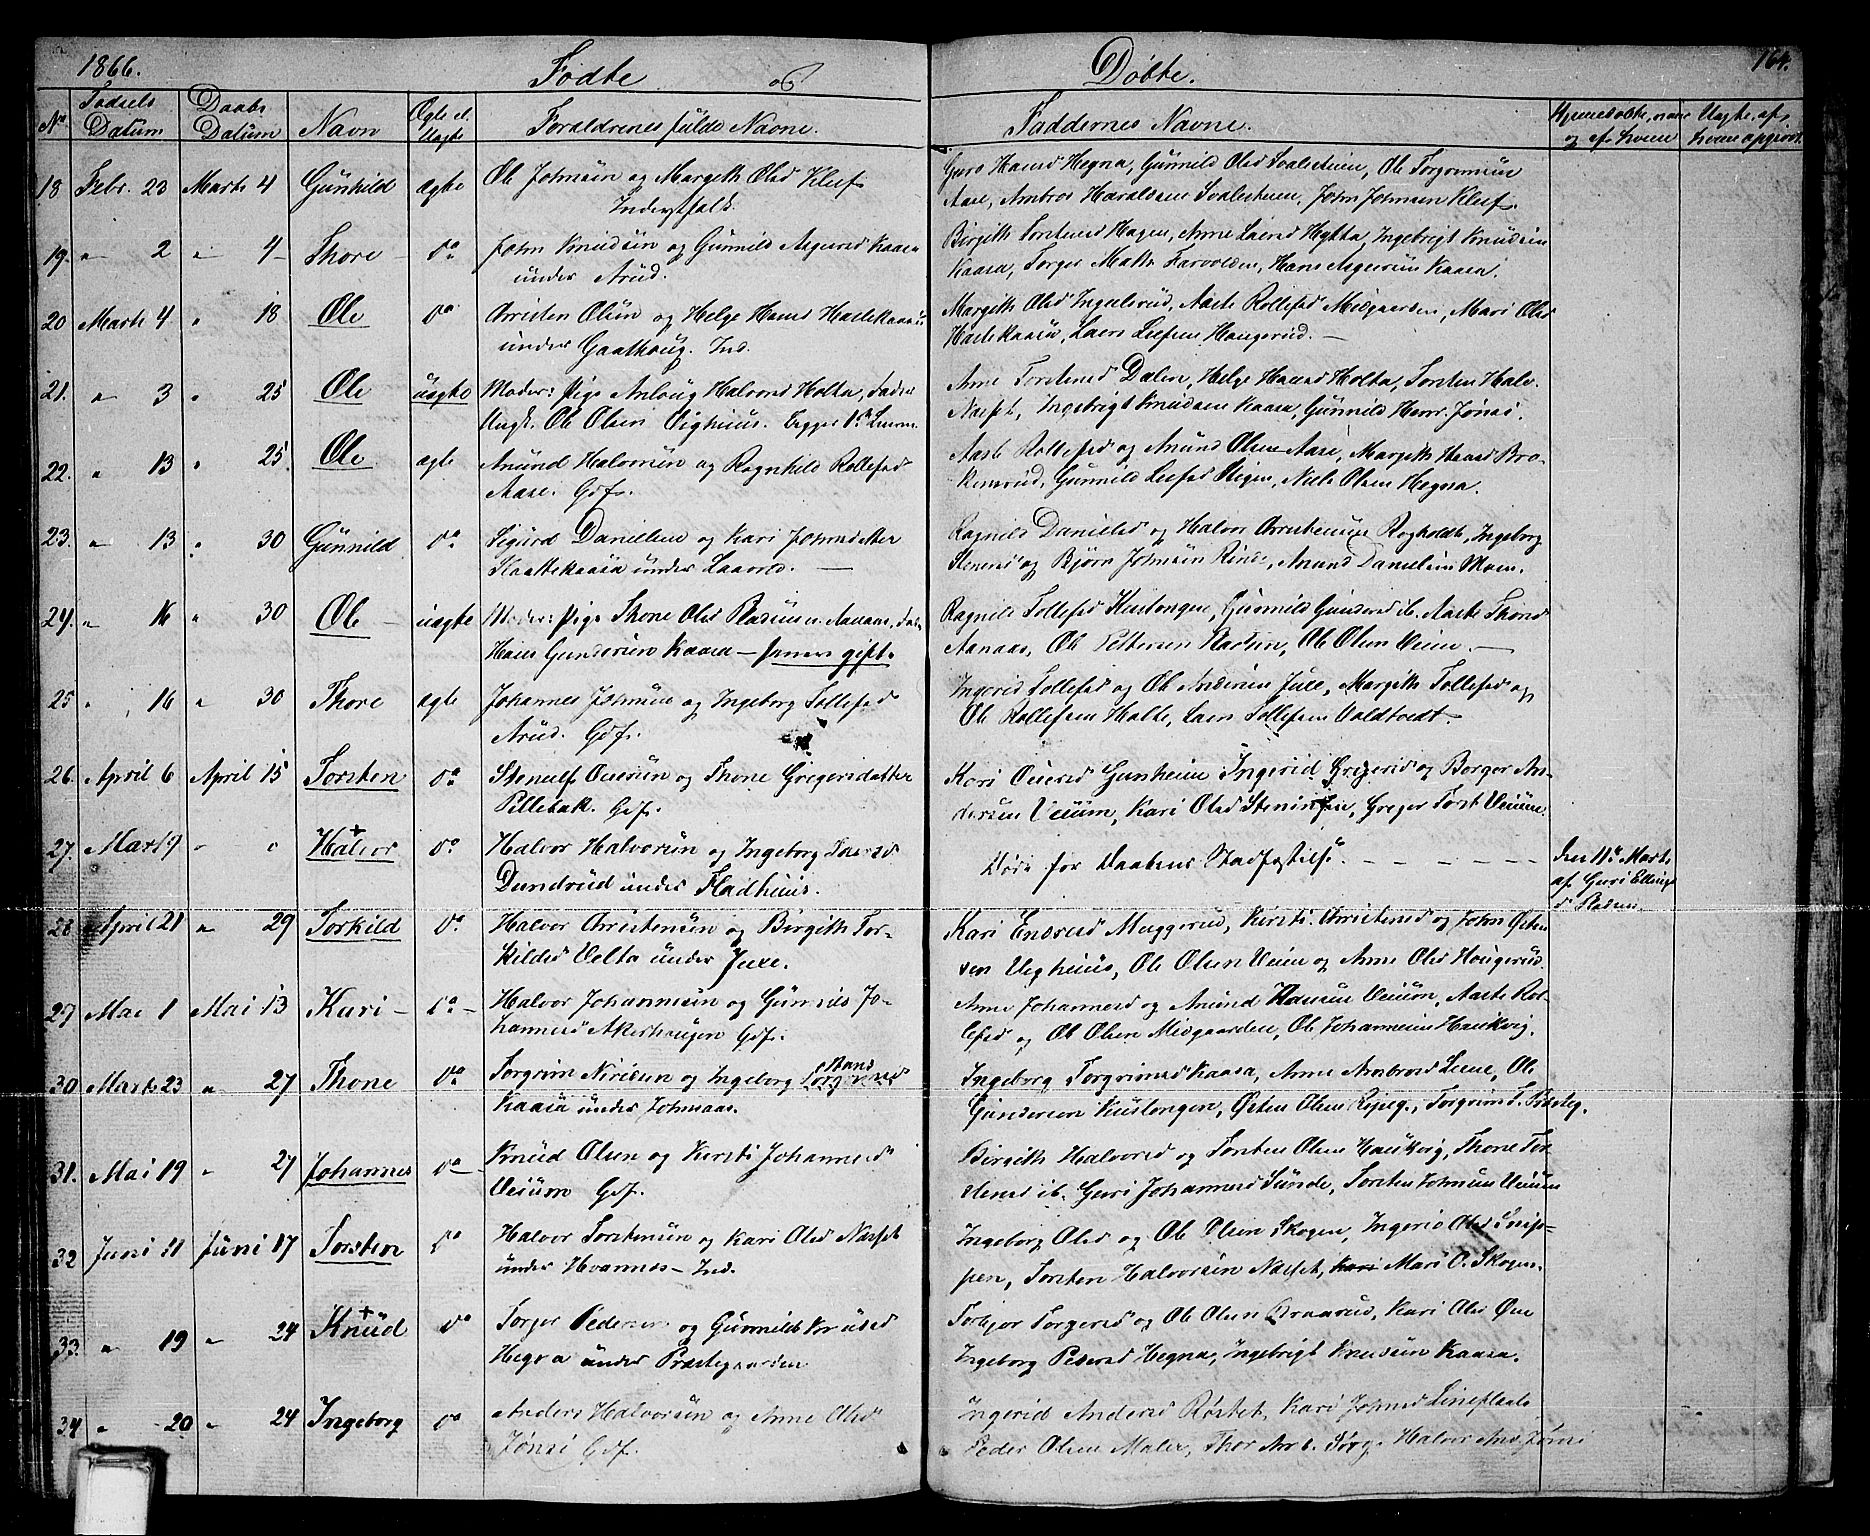 1866.
Fødte og
Døbte.
164.
No Fødsels Datum Daabs Datum Navn Ægte el. Uægte Forældrenes fulde Navne. Faddernes Navne. Hjemmedøbte, naar og af hvem Uægte, af hvem opgivet.
18 Febr. 23 Marts 4 Gunhild ægte Ole Johnsen og Margith Olsd Kleif
Inderstfolk.
Guro Hansd Hegna, Gunnild Olsd Svalestuen, Ole Torgrimsen
Aase, Ambros Haraldsen Svalestuen, John Johnsen Kleif.
19. " 2 " 4 Thore do John Knudsen og Gunnild Asgersd Kaasa
under Arud.
Birgith Torstensd Hagen, Anne Larsd Hytta, Ingebrigt Knudsen
Kaasa, Torger Matts. Farvolden, Hans Asgersen Kaasa.
20 Marts 4 " 18 Ole do Christen Olsen og Helge Hansd Haslekaasa
under Gaathoug. Ind.
Margith Olsd Ingulsrud, Aaste Rollefsd Midgaarden, Mari Olsd
Haslekaasa, Lars Leefsen Haugerud.
21. " 3 " 25 Ole uægte Moder: Pige Anlaug Halvorsd Holta, Fader
Ungk. Ole Olsen Vighuus. Begges 1ste Leierm.
Anne Torstensd Dalen, Helge Hansd Holta, Torsten Halv.
Næset, Ingebrigt Knudsen Kaasa, Gunnild Henr. Jønsi.
22. " 13 " 25 Ole ægte Anund Halvorsen og Ragnhild Rollefsd
Aase. Gdf.
Aaste Rollefsd og Anund Olsen Aase, Margith Hansd Bro-
kerud, Gunnild Leefsd Stigen, Niels Olsen Hegna.
23. " 13 " 30 Gunnild do Sigurd Danielsen og Kari Johnsdatter
Slaattekaasa under Laavrud.
Ragnild Danielsd og Halvor Christensen Rogholdt, Ingeborg
Stenersd og Bjørn Johnsen Rinde, Anund Danielsen Moen.
24. " 16 " 30 Ole uægte Moder: Pige Thone Olsd Aanaas, Fader
Hans Gundersen Kaasa — gift.
Ragnild Tollefsd Kaslongen, Gunnild Gundersd ib. Aaste Thorsd
Aanaas, Ole Pettersen, Ole Olsen Veum.
25 " 16 " 30 Thore ægte Johannes Johnsen og Ingeborg Tollefsd
Arud. Gdf.
Ingerid Tollefsd og Ole Andersen Juve, Margith Tollefsd og
Ole Rollefsen Holte, Lars Tollefsen Voldtvedt.
26. April 6 April 15 Torsten do Stenulf Eversen og Thone Gregersdatter
Pellebak. Gdf.
Kari Eversd Gunheim, Ingerid Gregersd og Borger An-
dersen Veum, Kari Olsd, Greger Torst. Veum.
27. Mart 9 " " Halvor + do Halvor Halvorsen og Ingeborg Larsd
Dundrud under Fladhuus.
Død før Daabens Stadfæstelse. — — — —
den 11te Marts
af Guri Ellings
d
28 April 21 " 29 Torkild do Halvor Christensen og Birgith Tor-
kildsd Velta under Juve.
Kari Endresd Muggerud, Kirsti Christensd og John Østen
sen Veghuus, Ole Olsen Veum og Anne Olsd Haugerud.
29 Mai 1 Mai 13 Kari do Halvor Johannesen og Gunnild Jo-
hannesd Akerhaugen Gdf.
Anne Johannesd og Anund Hansen Veum, Aaste Rol-
lefsd og Ole Olsen Midgaarden, Ole Johannesen Haukvig.
30 Marts 23 " 27 Thone do Torgrim Nirisen og Ingeborg
Kaasa under Johnsaas.
Ingeborg Torgrimsd Kaasa, Anne Ambrosd Leine, Ole
Gundersen Kaslongen, Østen Olsen, Torgrim T. Præsteg.
31. Mai 19 " 27 Johannes do Knud Olsen og Kirsti Johannesd
Veum Gdf.
Birgith Halvorsd og Torsten Olsen Haukvig, Thone Tor-
stensd ib. Guri Johannesd Sunde, Torsten Johnsen Veum
32 Juni 11 Juni 17 Torsten do Halvor Torstensen og Kari Olsd Næset
under Hvannes — Ind.
Ingeborg Olsd og Ole Olsen Skogen, Ingerid Olsd Snip-
pen, Torsten Halvorsen Næset, Kari Mari O. Skogen.
33. " 19 " 24 Knud + do Torger Pedersen og Gunnild Knudsd
Hegna under Præstegaarden
Torbjør Torgersd og Ole Olsen Braarud, Kari Olsd Øen
Ingeborg Pedersd Hegna, Ingebrigt Knudsen Kaasa.
34 " 20 " 24 Ingeborg do Anders Halvorsen og Anne Olsd
Jønsi Gdf.
Ingerid Andersd Røstet, Kari Johnsd Lineflaata
Peder Olsen Malen, Thor And. Jørg. Halvor And. Jønsi